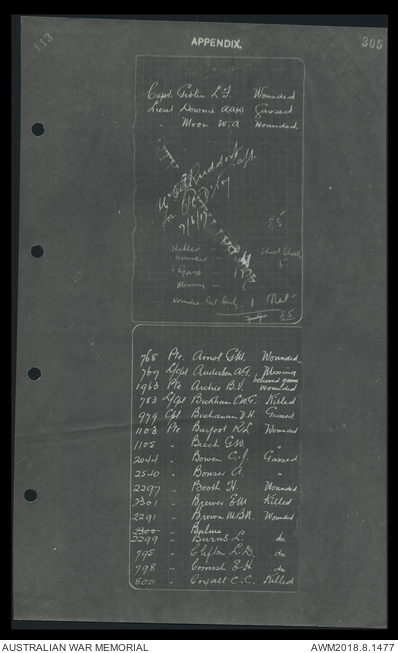 113
APPENDIX.
305
Capt. Giblin L.F. Wounded
Lieut Downie A.A.W. Gassed
" Moon W.A Wounded.
85
7/6/17
Killed
Wounded
" Gas
Missing
Wounded Ret. Duty 1
85
768 Pte. Arnol G.M. Wounded
769 L/Cpl Anderson A.G. Missing
believed gassed
1963 Pte Archer B.V. wounded
783 L/Cpl Bickham C.W.G. Killed
979 Cpl Buchanan D.H. Gassed
1103 Pte Barfoot R.L. Wounded
1105 " Beech G.W.
2044 " Bowen C.J. Gassed
2540 " Bonser A. "
2297 " Booth H. Wounded
2301 " Brewer E.M Killed
2291 " Brown M.B.A. Wounded
2300 "
2299 " Burns L. do
795 " Clifton L.D. do
798 " Cornish E.H. do
800 " Coxall C.C. Killed
AUSTRALIAN WAR MEMORIAL
AWM2018.8.1477